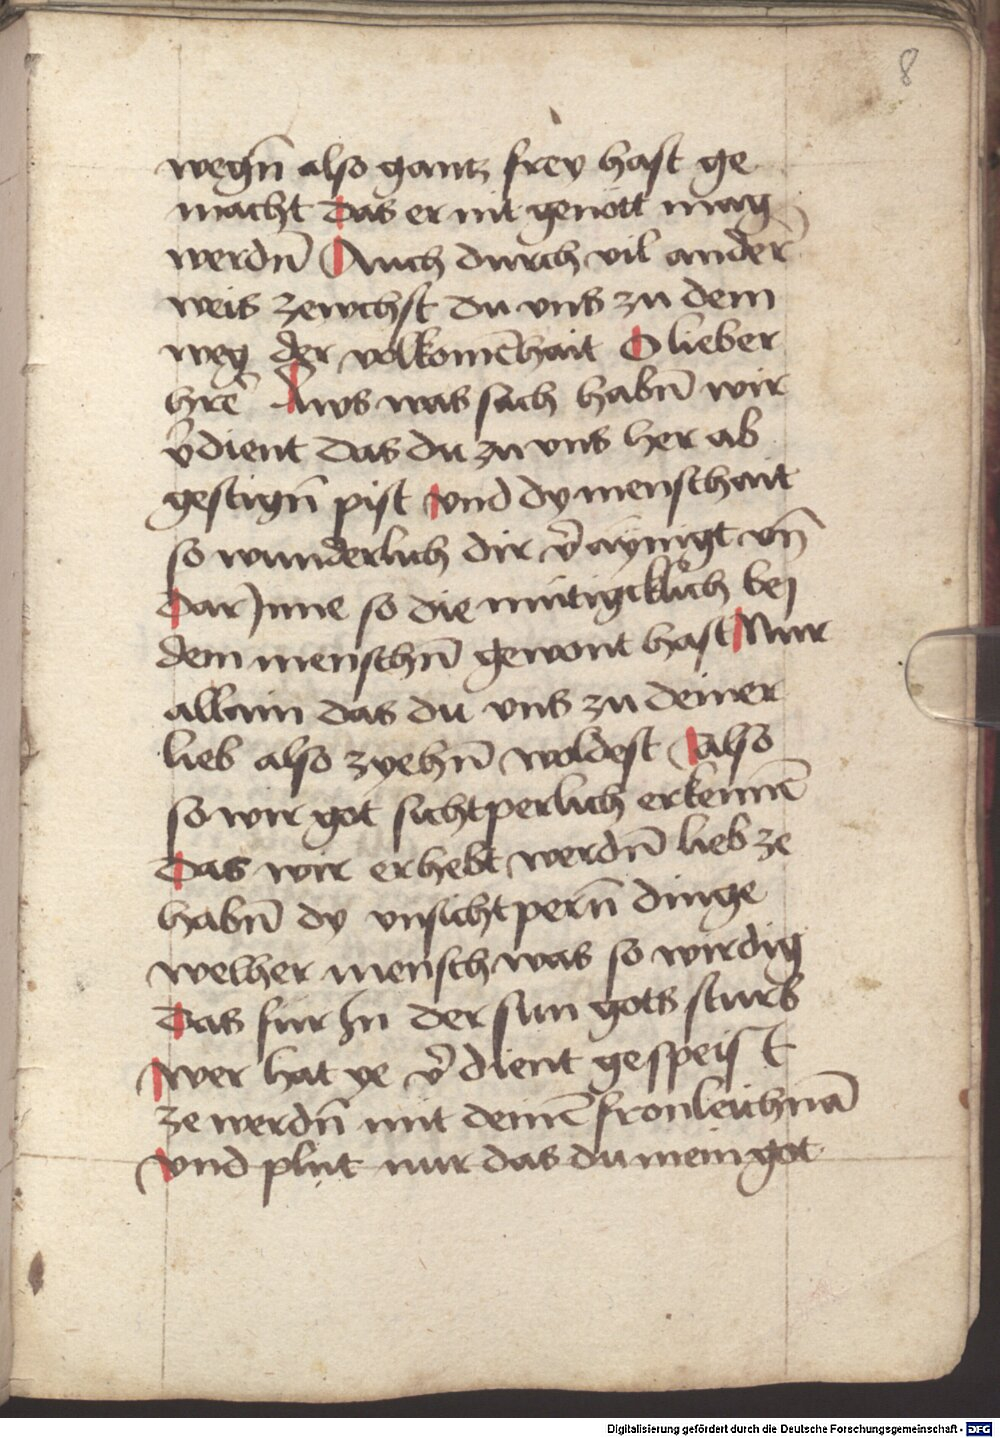 8
wegn̄ also gantz frey hast ge
macht das er nit genött mag
werdn̄ Auch durch vil ander
weis zewchst du vns zu dem
weg der volkomēhait O lieber
hrē Aws was sach habn̄ wir
v̄dient das du zu vns her ab
gestign̄ pist vnd dy menschait
so wunderlich dir v̄aynigt vn̄
dar Inne so die mütigcklich bei
dem menschn̄ gewont hast Nur
allain das du vns zu deiner
lieb also zyehn̄ woldest also
so wir got sichtperlich erkennē
das wir erhebt werdn̄ lieb ze
habn̄ dy vnsichtpern̄ dinge
welher mensch was so wirdig
Das für In der sun gots sturb
wer hat ye v̄dient gespeist
ze werdn̄ mit deinē fronleichnā
vnd plut nur das du mein got
Digitalisierung gefördert durch die Deutsche Forschungsgemeinschaft - DFG